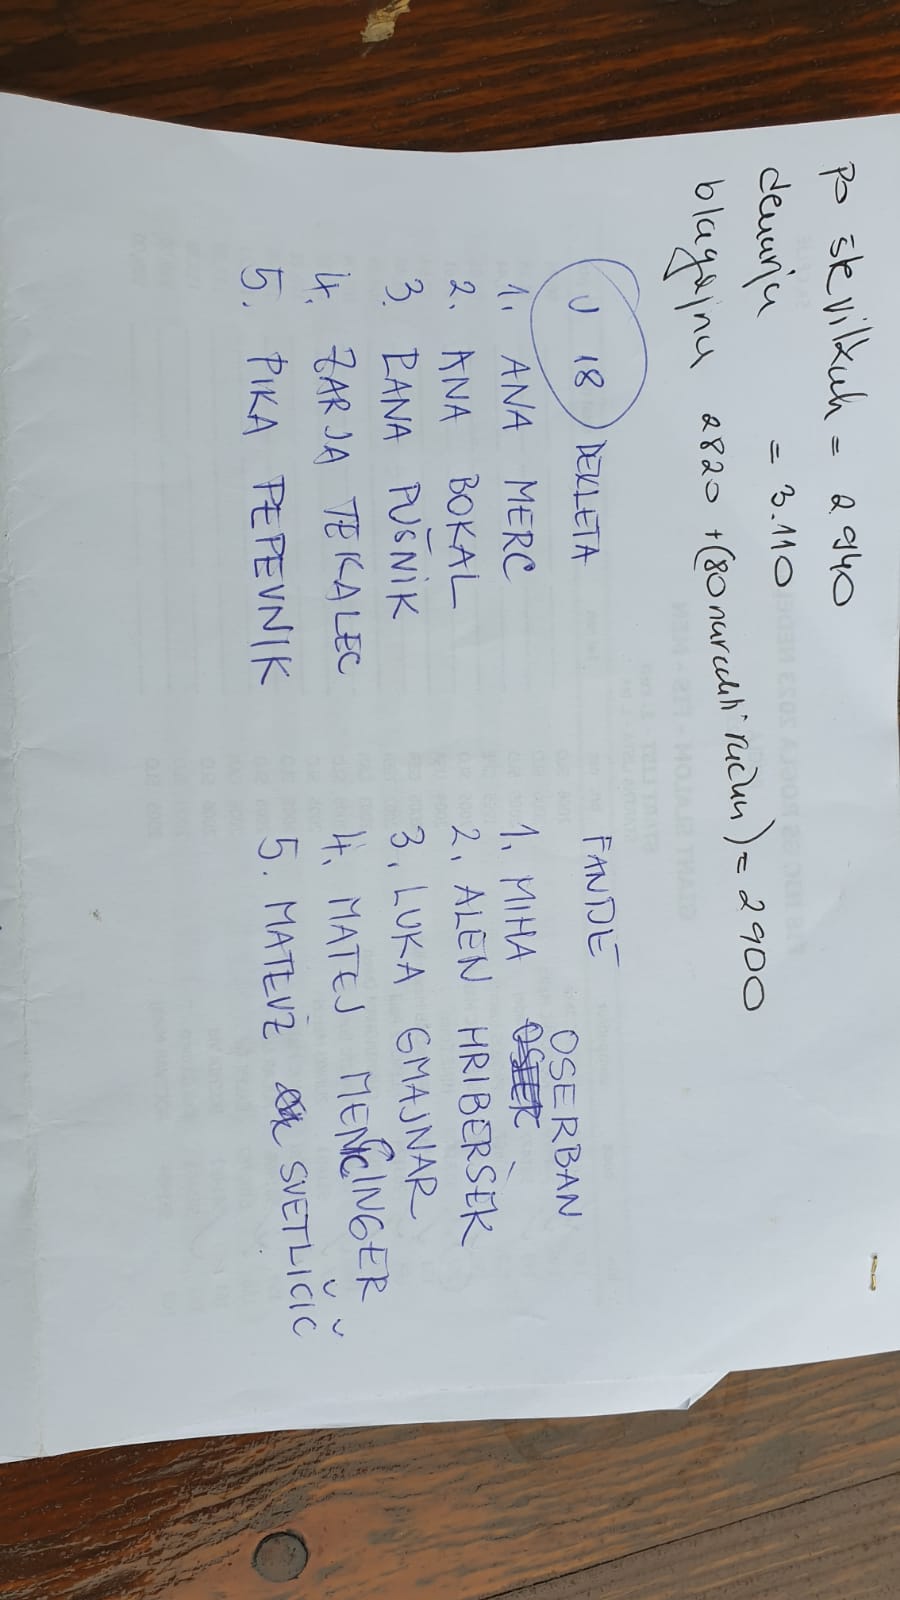 po številkah = 2940
denarja = 3.110
blagajna 2820 + (80 narediti račun) = 2900
U 18 DEKLETA
1. ANA MERC
2. ANA BOKAL
3. LANA PUŠNIK
4. ZARJA TEKALEC
5. PIKA PEPEVNIK
FANTJE
OSERBAN
1. MIHA
2. ALEN HRIBERŠEK
3. LUKA GMAJNAR
4. MATEJ MENCINGER
5. MATEVŽ SVETLIČIČ